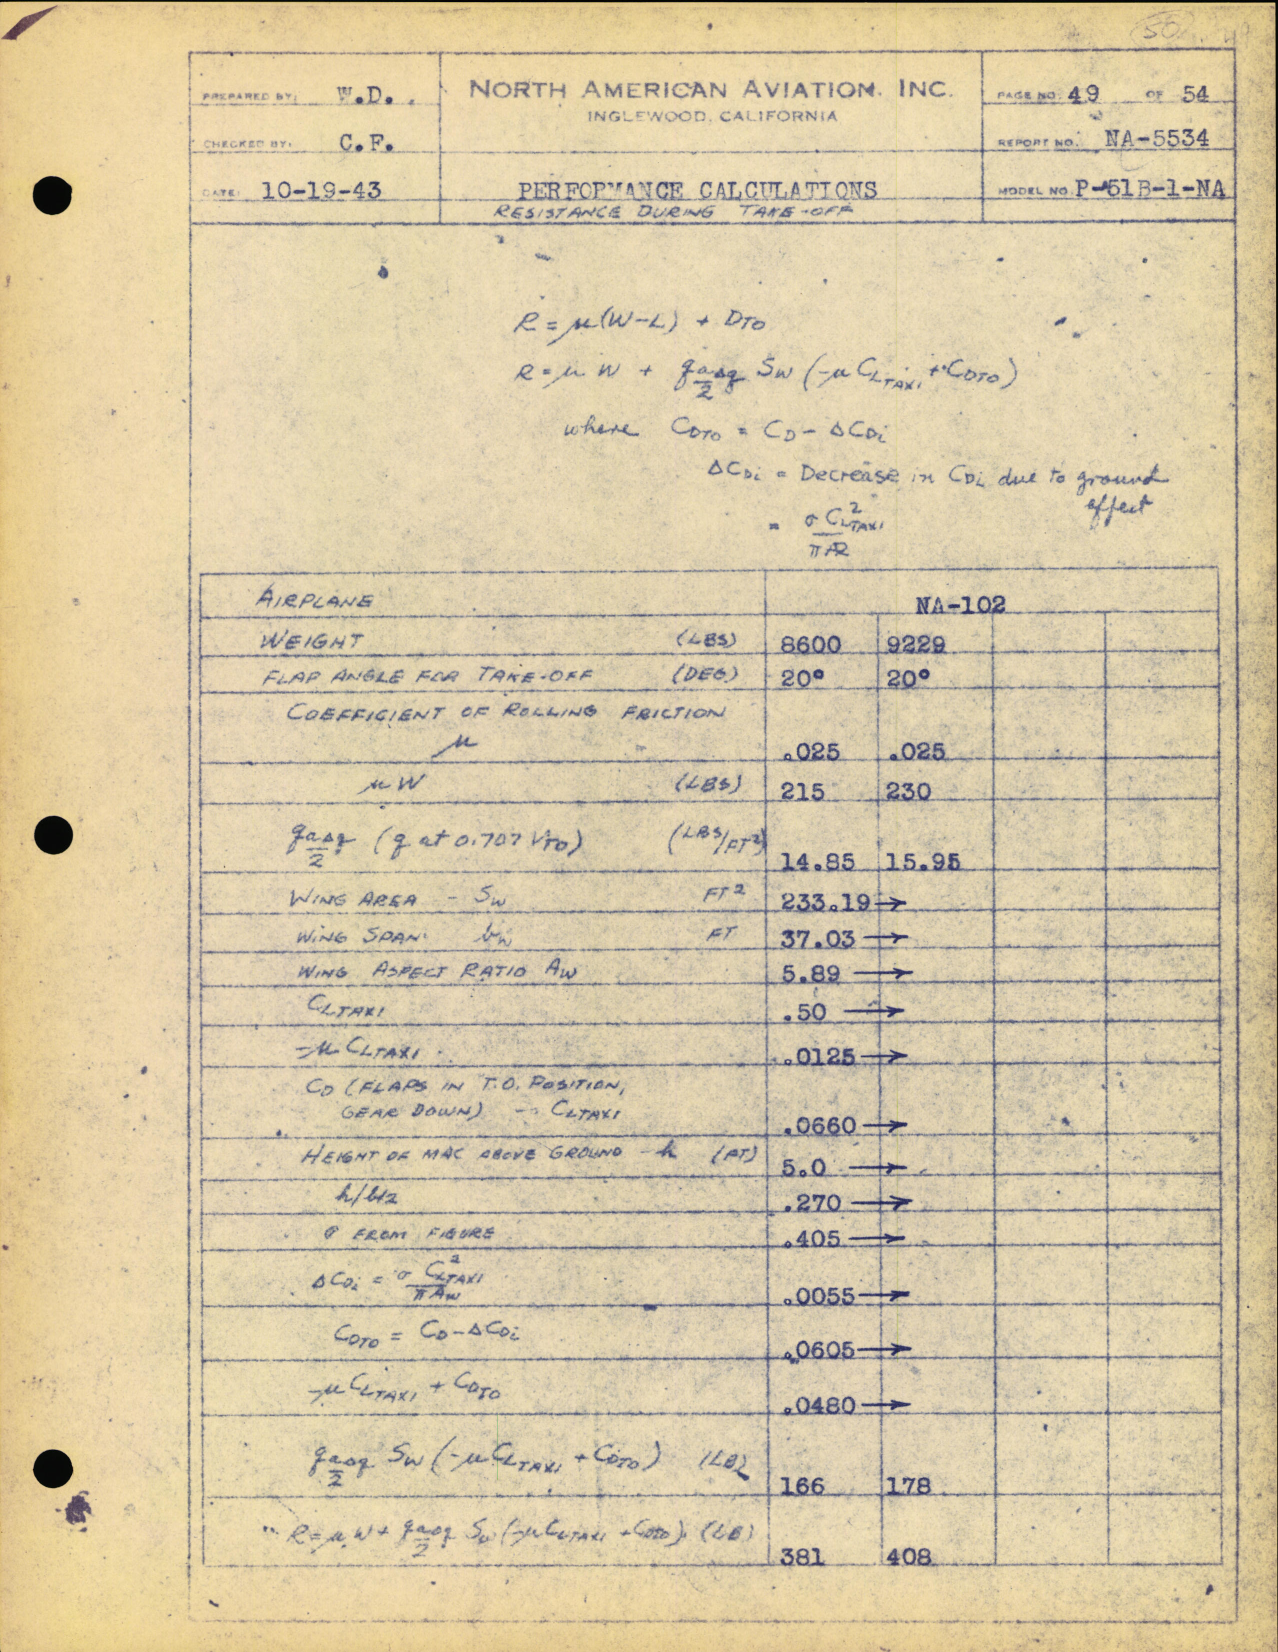 50
PREPARED BY: W.D.
NORTH AMERICAN AVIATION, INC.
INGLEWOOD, CALIFORNIA
PAGE NO. 49 OF 54
CHECKED BY: C.F.
REPORT NO. NA-5534
DATE: 10-19-43
PERFORMANCE CALCULATIONS
RESISTANCE DURING TAKE-OFF
MODEL NO. P-51B-1-NA
R = μ(W-L) + DTO
R = μ W + q SW (-μ CLTAXI + CDTO)
where CDTO = CD - ΔCDi
ΔCDi = Decrease in CDi due to ground
effect
= σ CLTAXI²
πAR
AIRPLANE NA-102
WEIGHT (LBS) 8600 9229
FLAP ANGLE FOR TAKE-OFF (DEG) 20° 20°
COEFFICIENT OF ROLLING FRICTION
μ .025 .025
μW (LBS) 215 230
(q at 0.707 VTO) (LBS/FT²) 14.85 15.95
WING AREA - SW FT² 233.19→
WING SPAN bW FT 37.03→
WING ASPECT RATIO AW 5.89→
CLTAXI .50→
-μ CLTAXI .0125→
CD (FLAPS IN T.O. POSITION,
GEAR DOWN) CLTAXI .0660→
HEIGHT OF MAC ABOVE GROUND - h (FT) 5.0→
h/b/2 .270→
σ FROM FIGURE .405→
ΔCDi = σ CLTAXI² / πAW .0055→
CDTO = CD - ΔCDi .0605→
-μ CLTAXI + CDTO .0480→
SW (-μ CLTAXI + CDTO) (LB) 166 178
R = μ W + SW (-μ CLTAXI + CDTO) (LB) 381 408